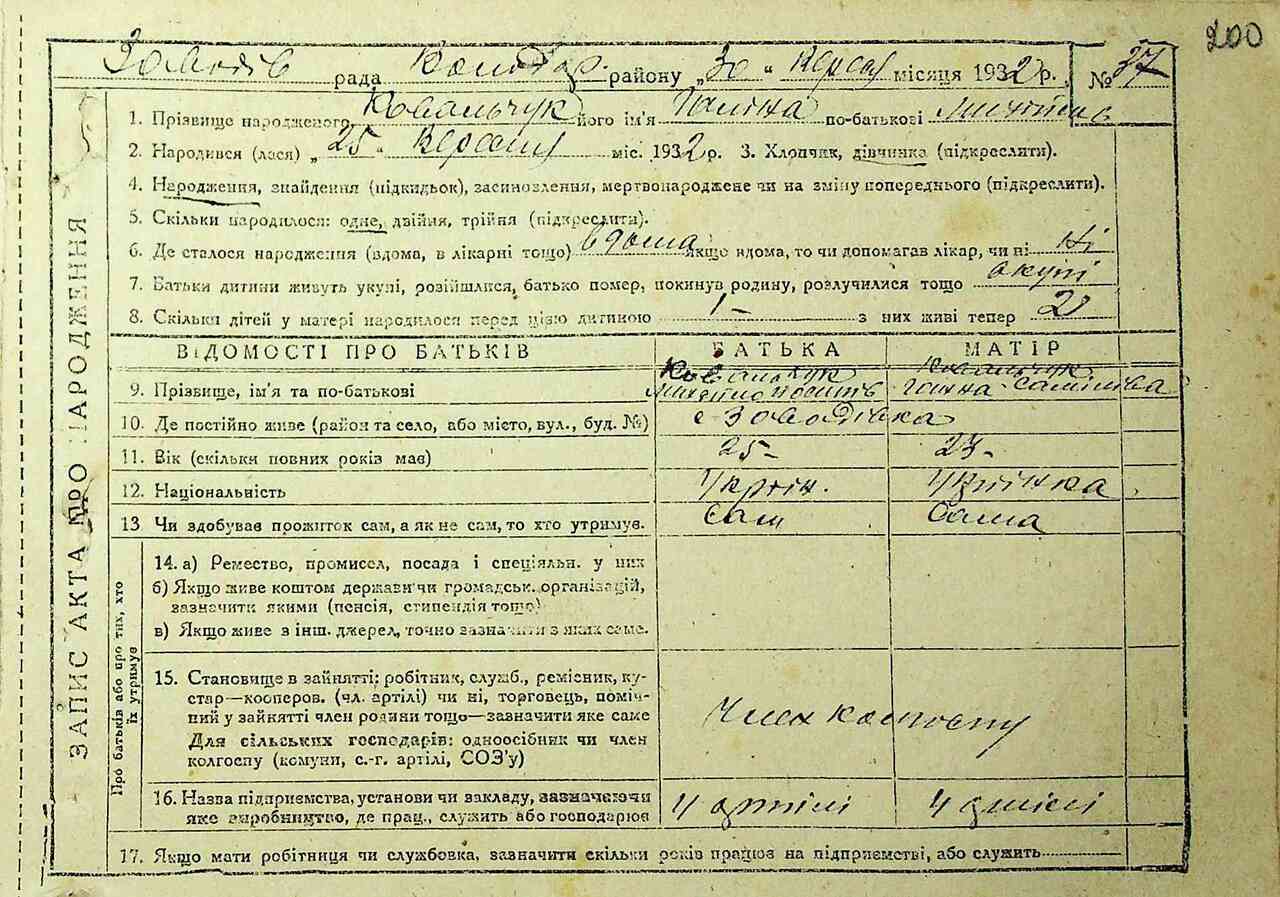 200
рада району „30 “ Верес місяця 1932 р. № 37
1. Прізвище народженого Ковальчук його ім'я Галина по-батькові
2. Народився (лася) „ 25 “ Вересня міс. 1932 р. 3. Хлопчик, дівчинка (підкреслити).
4. Народження, знайдення (підкидьок), засиновлення, мертвонароджене чи на зміну попереднього (підкреслити).
5. Скільки народилося: одне, двійня, трійня (підкреслити).
6. Де сталося народження (вдома, в лікарні тощо) вдома якщо вдома, то чи допомагав лікар, чи ні Ні
7. Батьки дитини живуть укупі, розійшлися, батько помер, покинув родину, розлучилися тощо
8. Скільки дітей у матері народилося перед цією дитиною 1- з них живі тепер 2
ВІДОМОСТІ ПРО БАТЬКІВ БАТЬКА МАТІР
9. Прізвище, ім'я та по-батькові Ковальчук Ковальчук
Ганна
10. Де постійно живе (район та село, або місто, вул., буд. №) с Заводівка
11. Вік (скільки повних років має) 25- 23-
12. Національність Україн. Українка
13. Чи здобував прожиток сам, а як не сам, то хто утримує. Сам Сама
14. а) Ремество, промисел, посада і спеціяльн. у них
б) Якщо живе коштом держави чи громадськ. організацій,
зазначити якими (пенсія, стипендія тощо)
в) Якщо живе з інш. джерел, точно зазначити з яких саме.
15. Становище в зайнятті: робітник, служб., ремісник, ку-
стар—кооперов. (чл. артілі) чи ні, торговець, поміч-
ний у зайнятті член родини тощо—зазначити яке саме
Для сільських господарів: одноосібник чи член
колгоспу (комуни, с.-г. артілі, СОЗ'у)
Член колгоспу
16. Назва підприємства, установи чи закладу, зазначаючи
яке виробництво, де прац., служить або господарює
У артілі У артілі
17. Якщо мати робітниця чи службовка, зазначити скільки років працює на підприємстві, або служить
ЗАПИС АКТА ПРО НАРОДЖЕННЯ
Про батьків або про тих, хто
їх утримує